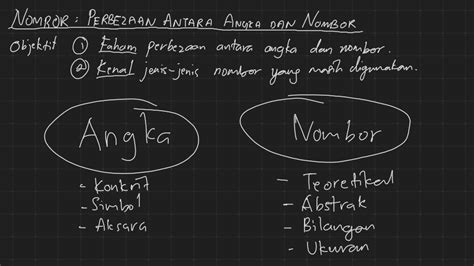 NOMBOR : PERBEZAAN ANTARA ANGKA DAN NOMBOR
Objektif ① Faham perbezaan antara angka dan nombor.
② Kenal jenis-jenis nombor yang masih digunakan.
Angka
- Konkrit
- Simbol
- Aksara
Nombor
- Teoretikal
- Abstrak
- Bilangan
- Ukuran